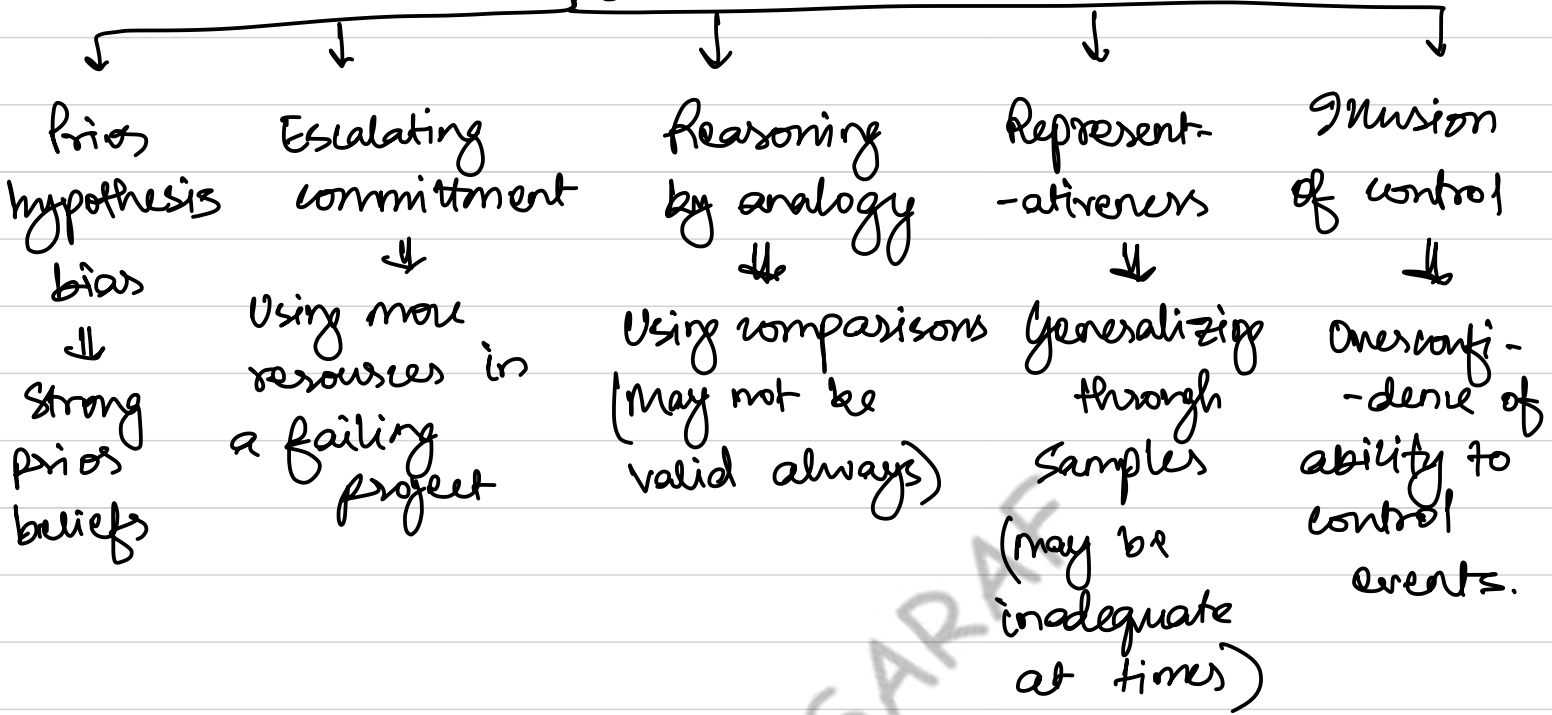 Prior
hypothesis
bias
⇓
Strong
prior
beliefs
Escalating
committment
⇓
Using more
resources in
a failing
project
Reasoning
by analogy
⇓
Using comparisons
(May not be
valid always)
Represent-
-ativeness
⇓
Generalizing
through
Samples
(may be
inadequate
at times)
Illusion
of control
⇓
Overconfi-
-dence of
ability to
control
events.
SARAF